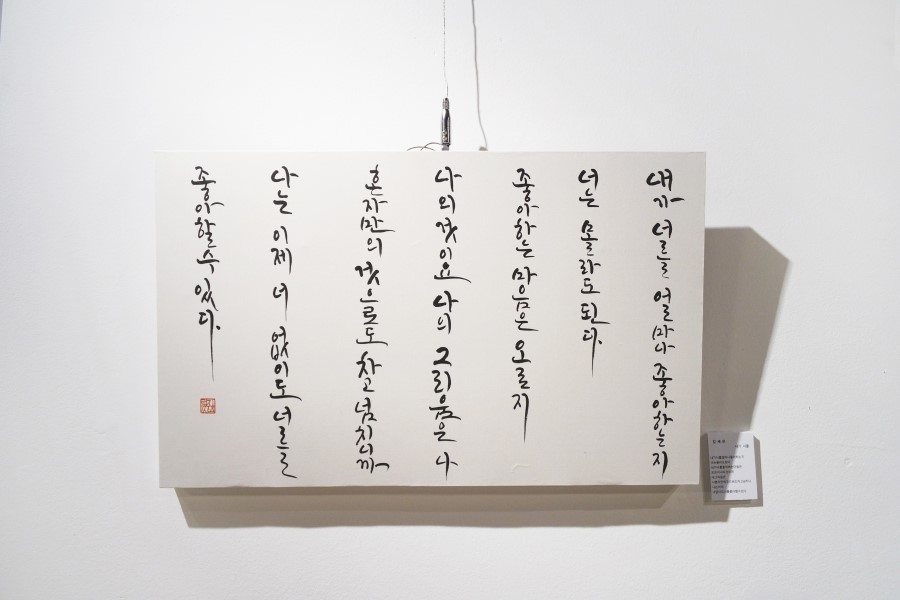 내가 너를 얼마나 좋아하는지
너는 몰라도 된다.
좋아하는 마음은 오로지
나의 것이요 나의 그리움은 나
혼자만의 것으로도 차고 넘치니까
나는 이제 너 없이도 너를
좋아할 수 있다.